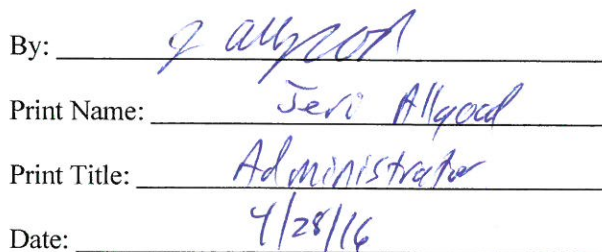 By: J Allgood
Print Name: Jeri Allgood
Print Title: Administrator
Date: 4/28/16